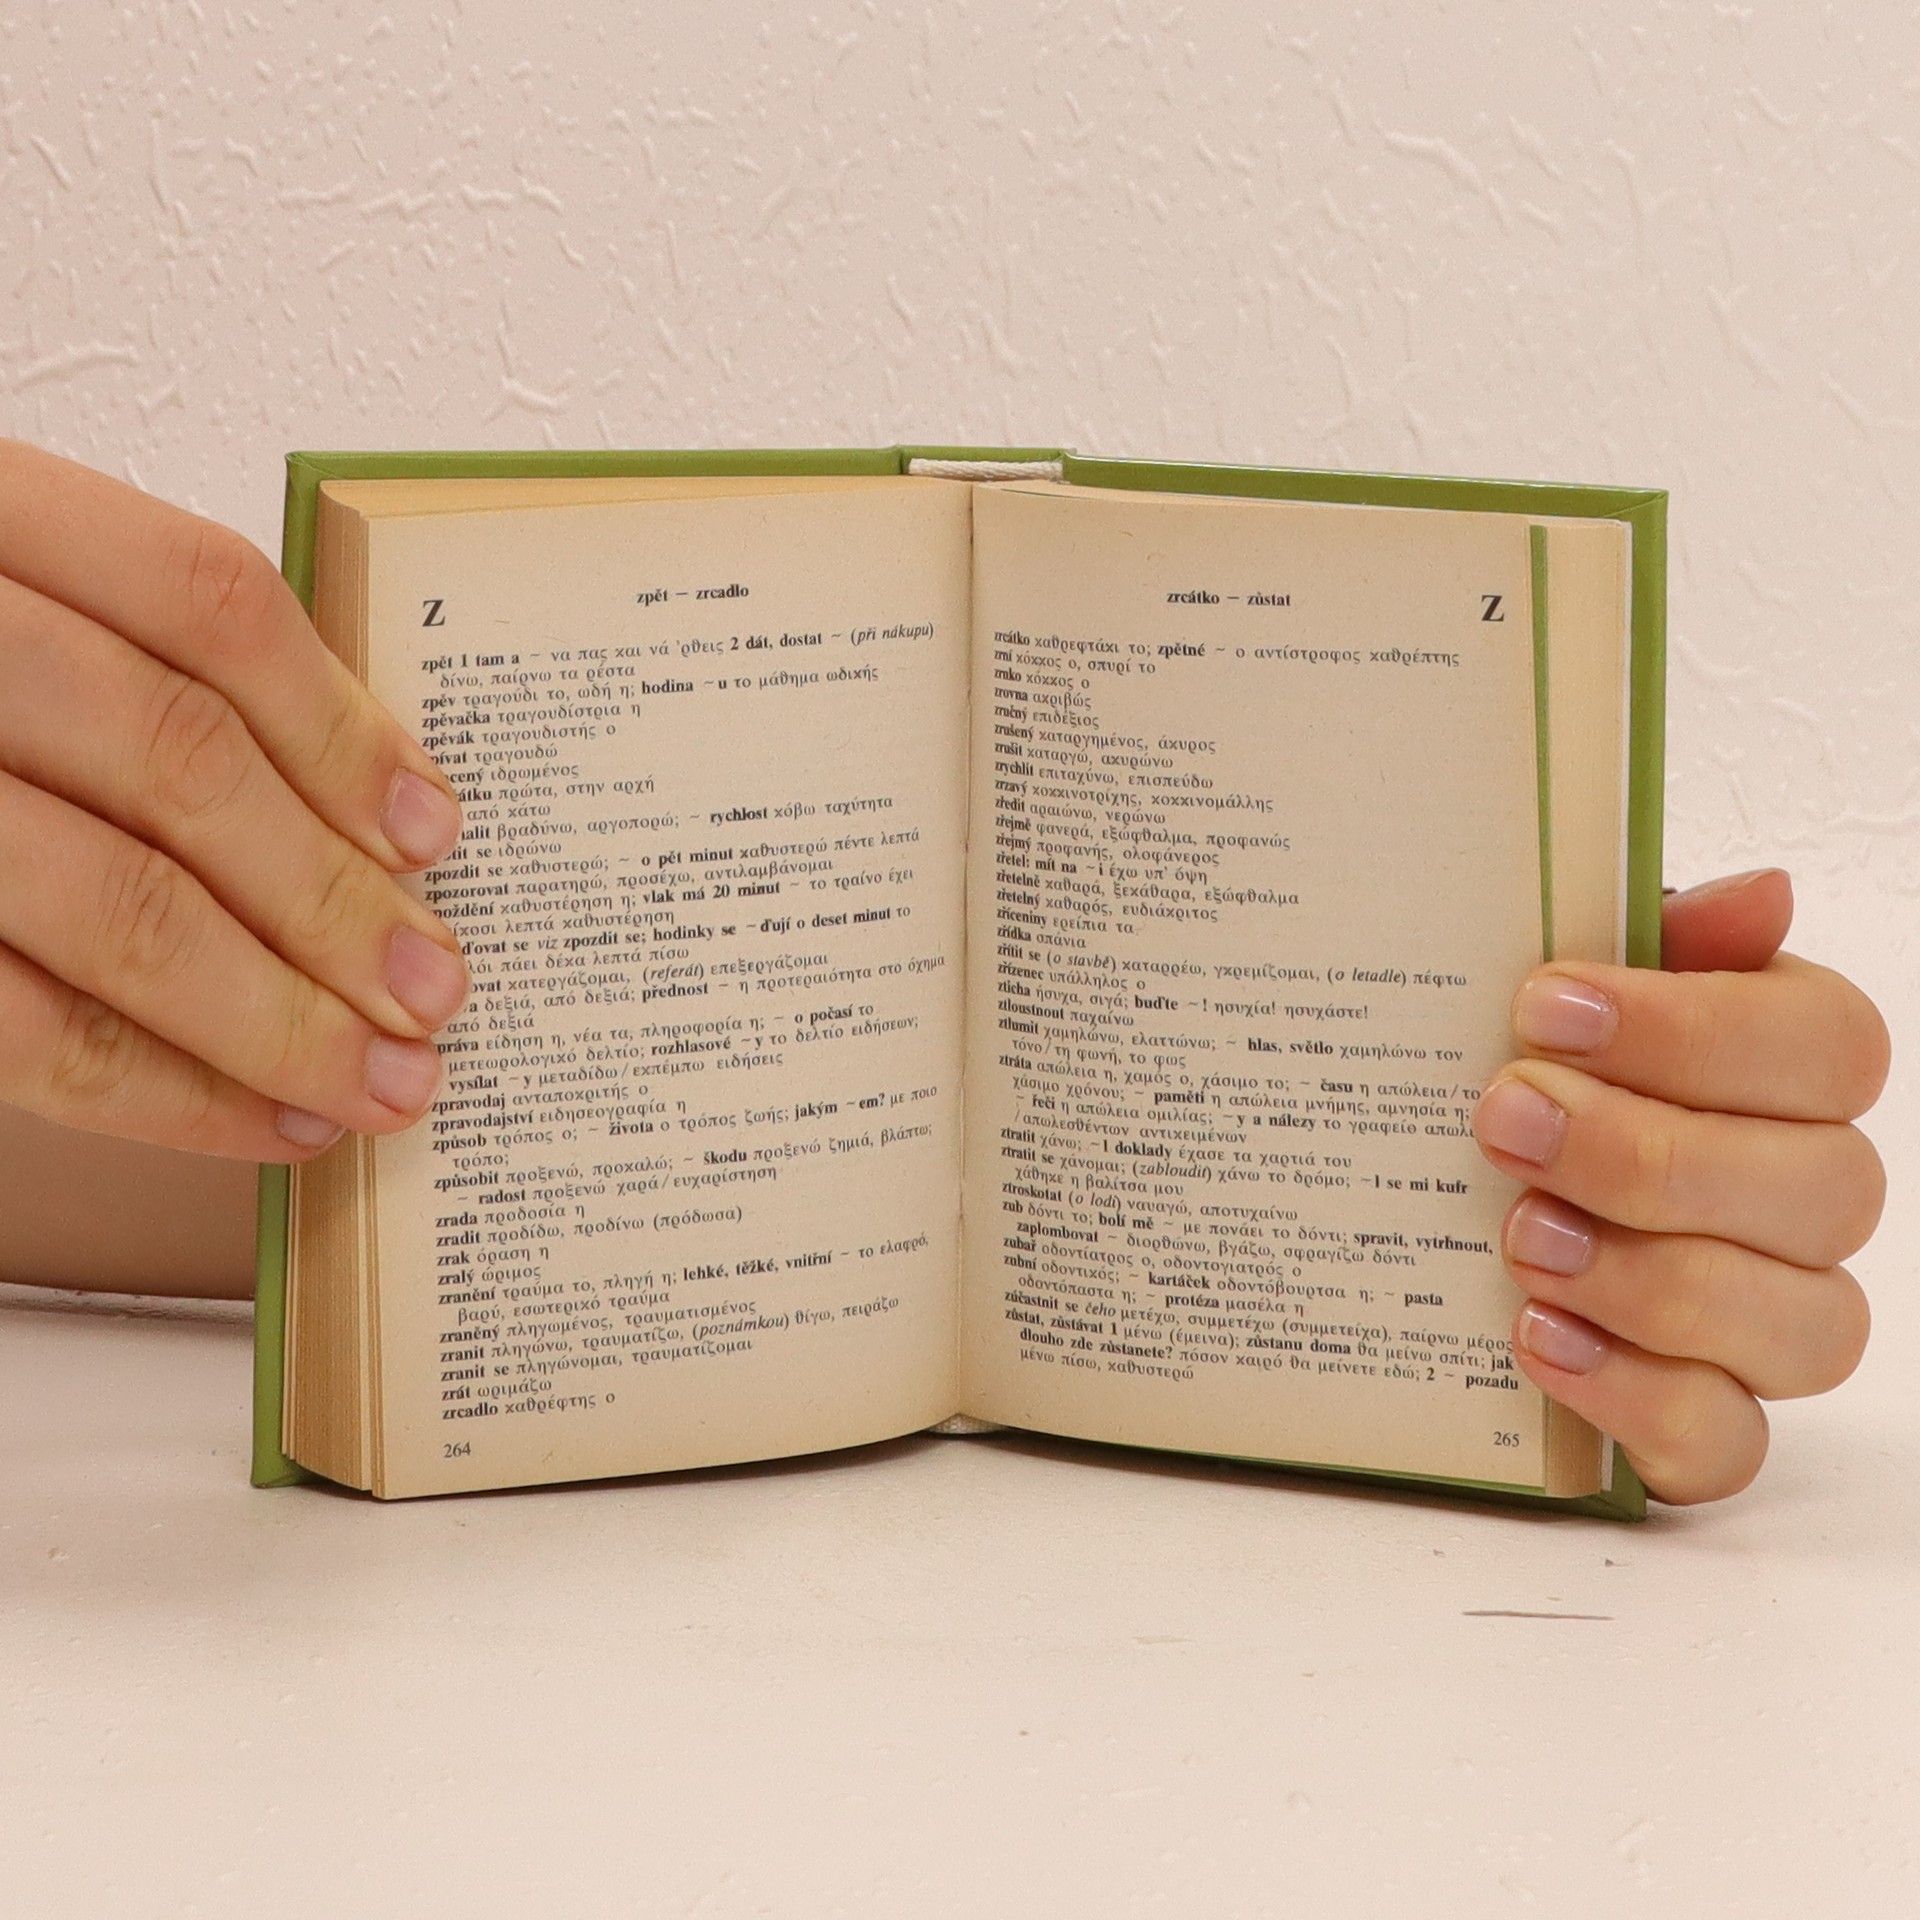 Z
zpět — zrcadlo
zpět 1 tam a ~ να πας και νά 'ρθεις 2 dát, dostat ~ (při nákupu)
δίνω, παίρνω τα ρέστα
zpěv τραγούδι το, ωδή η; hodina ~u το μάθημα ωδικής
zpěvačka τραγουδίστρια η
zpěvák τραγουδιστής ο
τραγουδώ
ιδρωμένος
πρώτα, στην αρχή
από κάτω
βραδύνω, αργοπορώ; ~ rychlost κόβω ταχύτητα
se ιδρώνω
zpozdit se καθυστερώ; ~ o pět minut καθυστερώ πέντε λεπτά
zpozorovat παρατηρώ, προσέχω, αντιλαμβάνομαι
καθυστέρηση η; vlak má 20 minut ~ το τραίνο έχει
λεπτά καθυστέρηση
se viz zpozdit se; hodinky se ~ďují o deset minut το
πάει δέκα λεπτά πίσω
κατεργάζομαι, (referát) επεξεργάζομαι
δεξιά, από δεξιά; přednost ~ η προτεραιότητα στο όχημα
από δεξιά
είδηση η, νέα τα, πληροφορία η; ~ o počasí το
μετεωρολογικό δελτίο; rozhlasové ~y το δελτίο ειδήσεων;
vysílat ~y μεταδίδω/εκπέμπω ειδήσεις
zpravodaj ανταποκριτής ο
zpravodajství ειδησεογραφία η
způsob τρόπος ο; ~ života ο τρόπος ζωής; jakým ~em? με ποιο
τρόπο;
způsobit προξενώ, προκαλώ; ~ škodu προξενώ ζημιά, βλάπτω;
~ radost προξενώ χαρά/ευχαρίστηση
zrada προδοσία η
zradit προδίδω, προδίνω (πρόδωσα)
zrak όραση η
zralý ώριμος
zranění τραύμα το, πληγή η; lehké, těžké, vnitřní ~ το ελαφρό,
βαρύ, εσωτερικό τραύμα
zraněný πληγωμένος, τραυματισμένος
zranit πληγώνω, τραυματίζω, (poznámkou) θίγω, πειράζω
zranit se πληγώνομαι, τραυματίζομαι
zrát ωριμάζω
zrcadlo καθρέφτης ο
264
zrcátko — zůstat
Z
zrcátko καθρεφτάκι το; zpětné ~ ο αντίστροφος καθρέπτης
zrní κόκκος ο, σπυρί το
zrnko κόκκος ο
zrovna ακριβώς
zručný επιδέξιος
zrušený καταργημένος, άκυρος
zrušit καταργώ, ακυρώνω
zrychlit επιταχύνω, επισπεύδω
zrzavý κοκκινοτρίχης, κοκκινομάλλης
zředit αραιώνω, νερώνω
zřejmě φανερά, εξώφθαλμα, προφανώς
zřejmý προφανής, ολοφάνερος
zřetel: mít na ~i έχω υπ' όψη
zřetelně καθαρά, ξεκάθαρα, εξώφθαλμα
zřetelný καθαρός, ευδιάκριτος
zříceniny ερείπια τα
zřídka σπάνια
zřítit se (o stavbě) καταρρέω, γκρεμίζομαι, (o letadle) πέφτω
zřízenec υπάλληλος ο
zticha ήσυχα, σιγά; buďte ~! ησυχία! ησυχάστε!
ztloustnout παχαίνω
ztlumit χαμηλώνω, ελαττώνω; ~ hlas, světlo χαμηλώνω τον
τόνο/τη φωνή, το φως
ztráta απώλεια η, χαμός ο, χάσιμο το; ~ času η απώλεια/το
χάσιμο χρόνου; ~ paměti η απώλεια μνήμης, αμνησία η;
~ řeči η απώλεια ομιλίας; ~y a nálezy το γραφείο
/απωλεσθέντων αντικειμένων
ztratit χάνω; ~l doklady έχασε τα χαρτιά του
ztratit se χάνομαι; (zabloudit) χάνω το δρόμο; ~l se mi kufr
χάθηκε η βαλίτσα μου
ztroskotat (o lodi) ναυαγώ, αποτυχαίνω
zub δόντι το; bolí mě ~ με πονάει το δόντι; spravit, vytrhnout,
zaplombovat ~ διορθώνω, βγάζω, σφραγίζω δόντι
zubař οδοντίατρος ο, οδοντογιατρός ο
zubní οδοντικός; ~ kartáček οδοντόβουρτσα η; ~ pasta
οδοντόπαστα η; ~ protéza μασέλα η
zúčastnit se čeho μετέχω, συμμετέχω (συμμετείχα), παίρνω μέρος
zůstat, zůstávat 1 μένω (έμεινα); zůstanu doma θα μείνω σπίτι; jak
dlouho zde zůstanete? πόσον καιρό θα μείνετε εδώ; 2 ~ pozadu
μένω πίσω, καθυστερώ
265